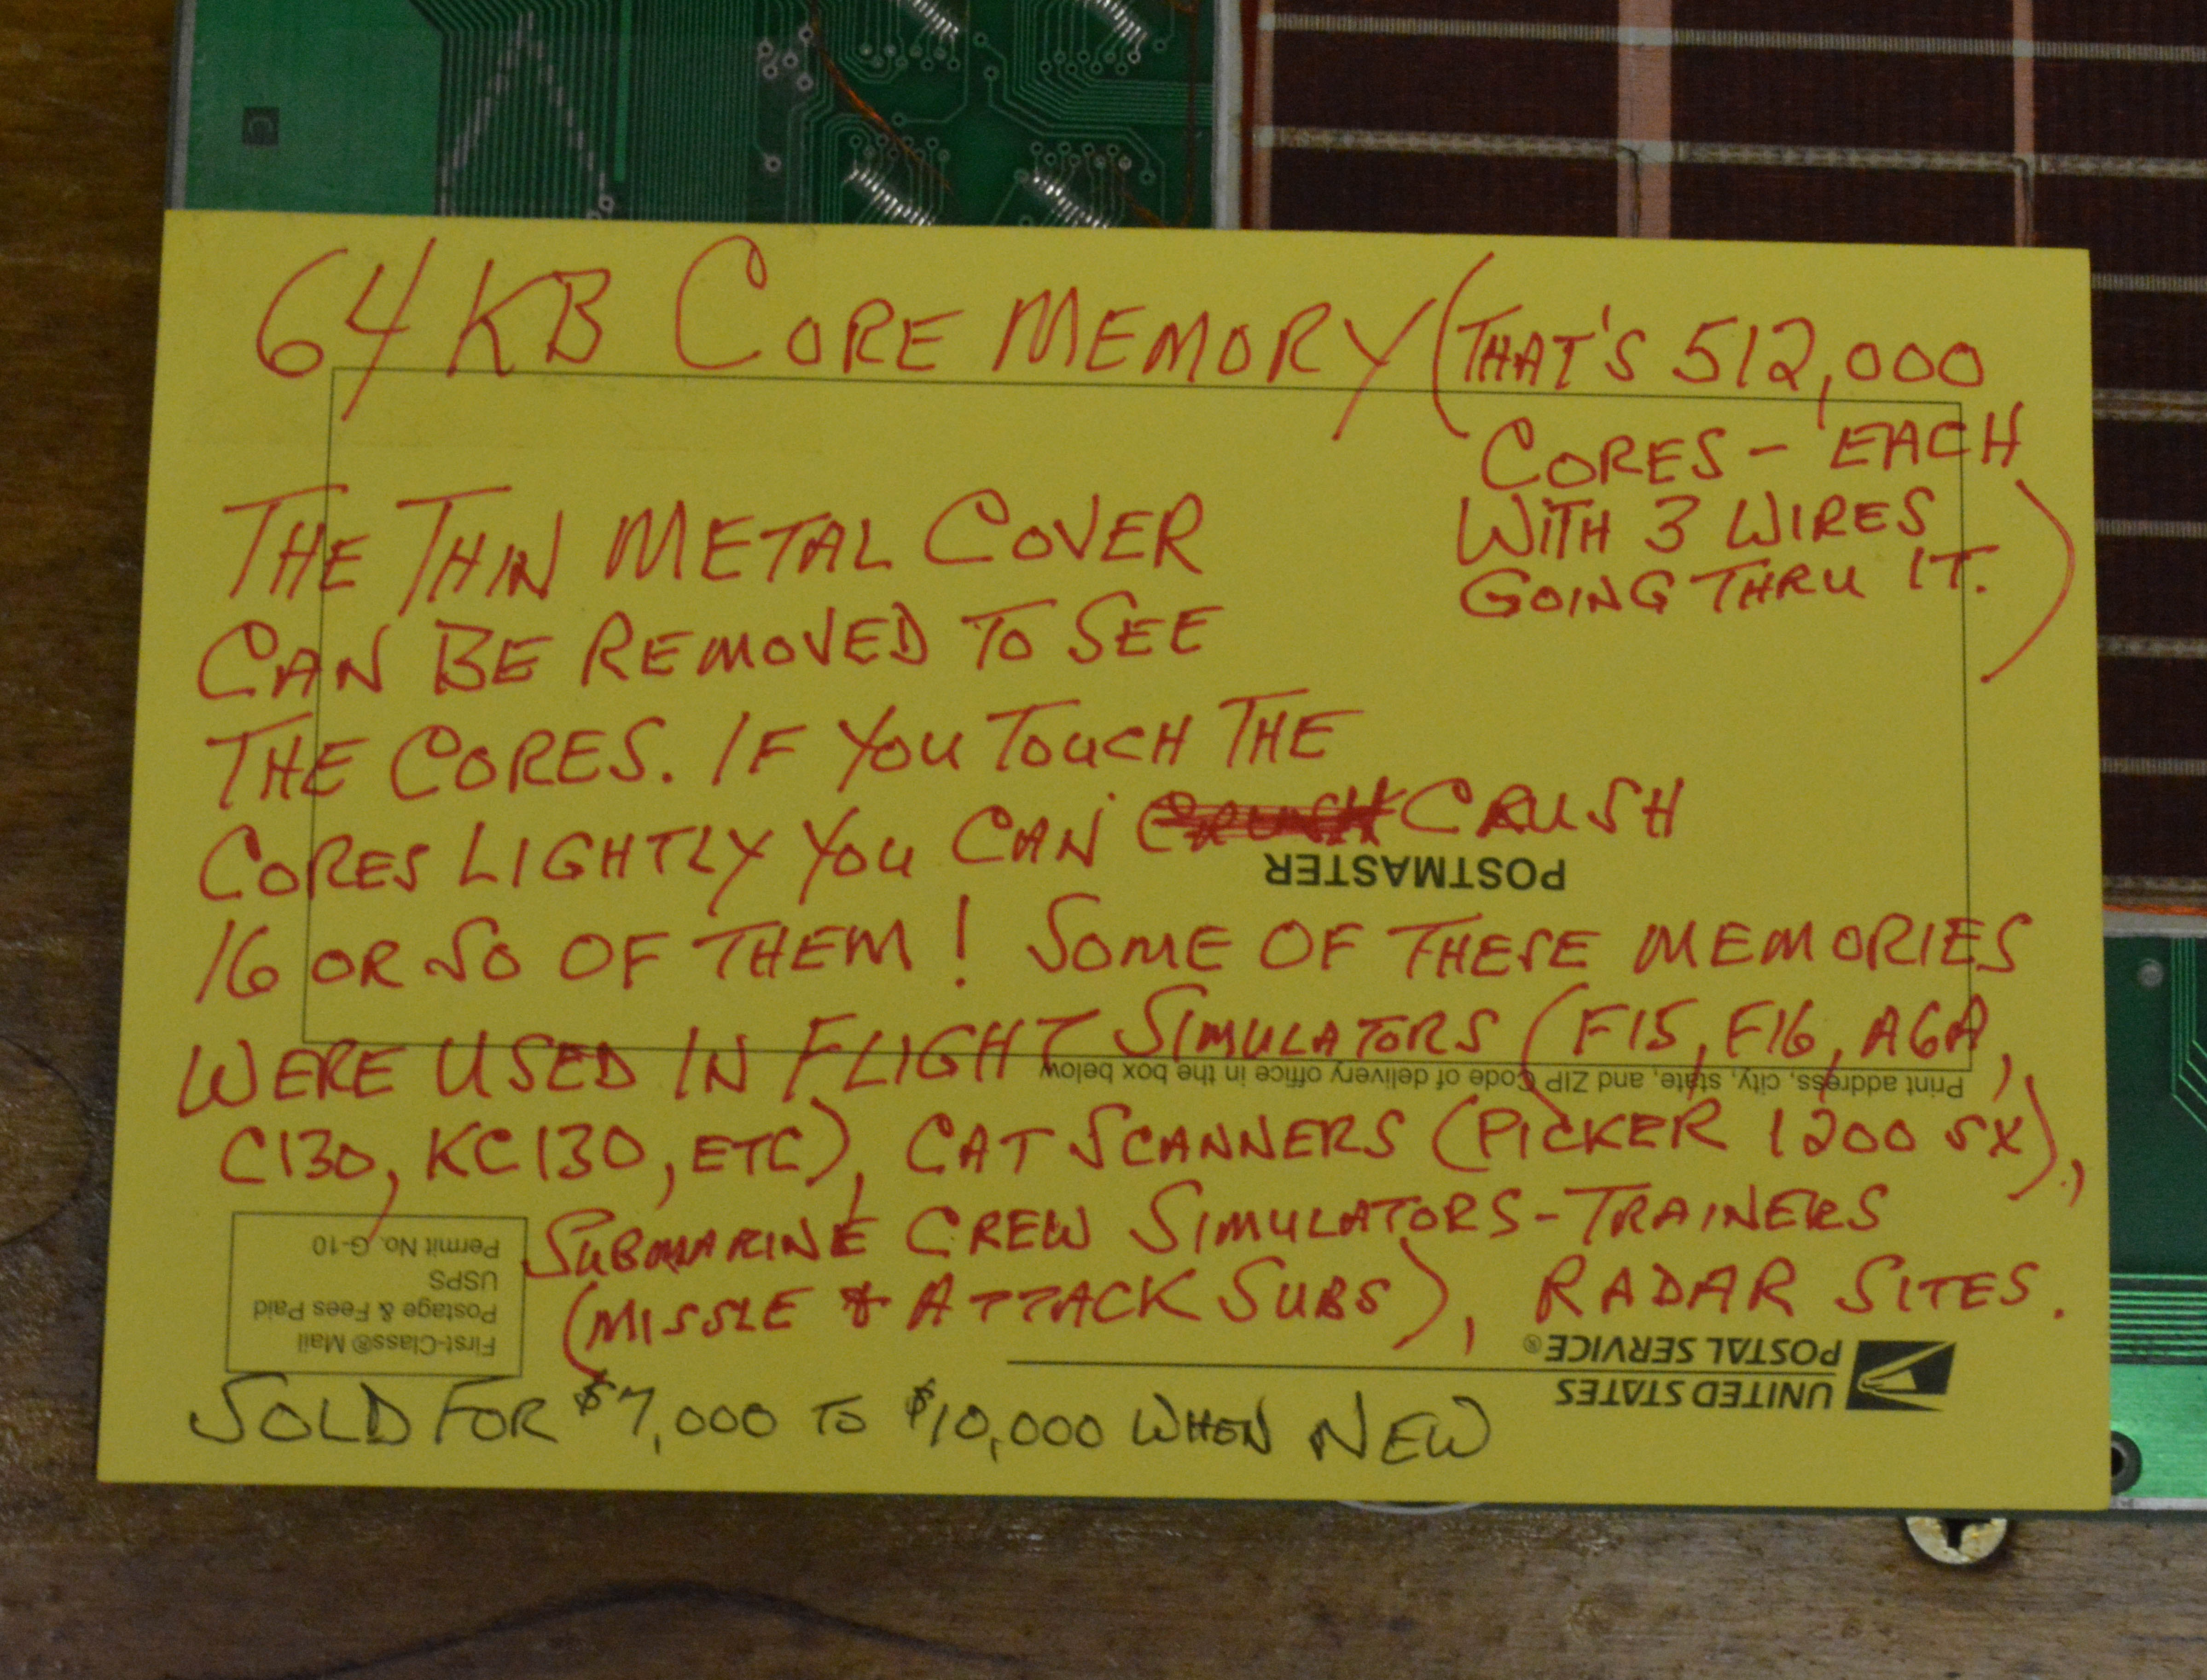 64 KB CORE MEMORY (THAT'S 512,000
CORES - EACH
WITH 3 WIRES
GOING THRU IT.)
THE THIN METAL COVER
CAN BE REMOVED TO SEE
THE CORES. IF YOU TOUCH THE
CORES LIGHTLY YOU CAN CRUSH CRUSH
16 OR SO OF THEM! SOME OF THESE MEMORIES
WERE USED IN FLIGHT SIMULATORS (F15, F16, A6A,
C130, KC130, ETC), CAT SCANNERS (PICKER 1200 SX),
SUBMARINE CREW SIMULATORS-TRAINERS
(MISSLE & ATTACK SUBS), RADAR SITES.
SOLD FOR $7,000 TO $10,000 WHEN NEW
UNITED STATES
POSTAL SERVICE®
First-Class® Mail
Postage & Fees Paid
USPS
Permit No. G-10
Print address, city, state, and ZIP Code of delivery office in the box below
POSTMASTER